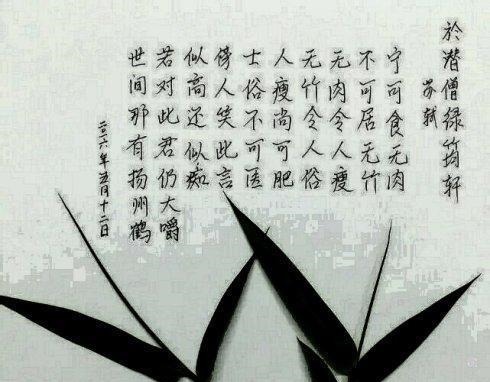 於潜僧绿筠轩
苏轼
宁可食无肉
不可居无竹
无肉令人瘦
无竹令人俗
人瘦尚可肥
士俗不可医
傍人笑此言
似高还似痴
若对此君仍大嚼
世间那有扬州鹤
二〇一六年五月十二日